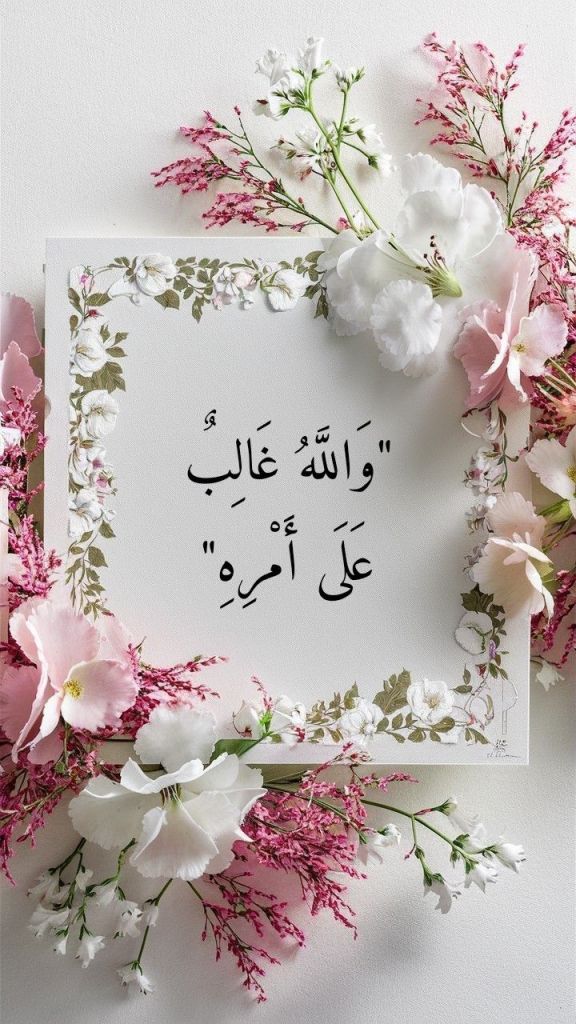 "وَاللَّهُ غَالِبٌ
عَلَى أَمْرِهِ"